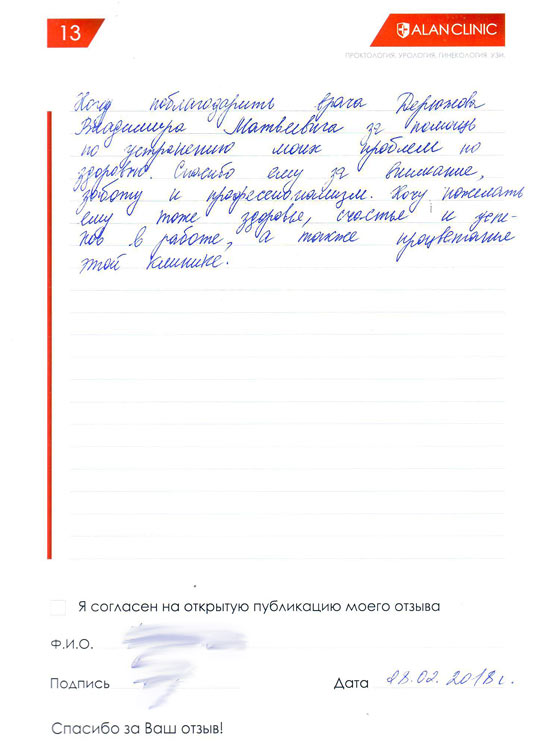 13
ALAN CLINIC
ПРОКТОЛОГИЯ, УРОЛОГИЯ, ГИНЕКОЛОГИЯ, УЗИ
Хочу поблагодарить врача Дерюжова
Владимира Матвеевича за помощь
по устранению моих проблем по
здоровью. Спасибо ему за внимание,
заботу и профессионализм. Хочу пожелать
ему тоже здоровье, счастье и успе-
хов в работе, а также процветание
этой клинике.
Я согласен на открытую публикацию моего отзыва
Ф.И.О.
Подпись
Дата 28.02.2018 г.
Спасибо за Ваш отзыв!